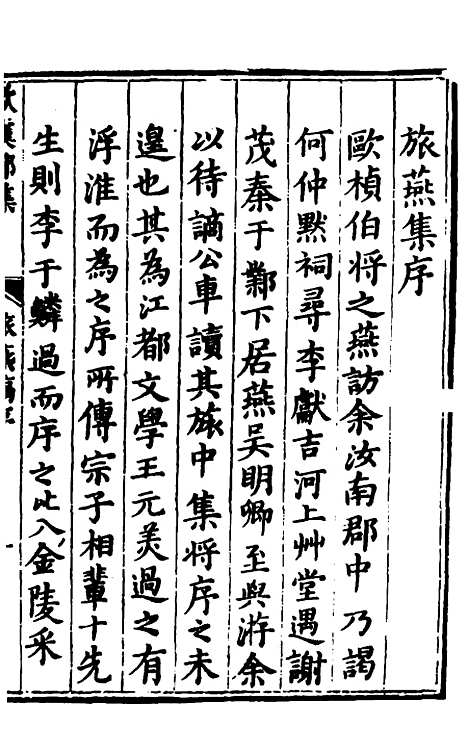 旅燕集序
歐楨伯將之燕訪余汝南郡中乃謁
何仲默祠尋李獻吉河上艸堂遇謝
茂秦于鄴下居燕吴明卿至與游余
以待謫公車讀其旅中集將序之未
遑也其為江都文學王元美過之有
浮淮而為之序所傳宗子相輩十先
生則李于鱗過而序之北入金陵采